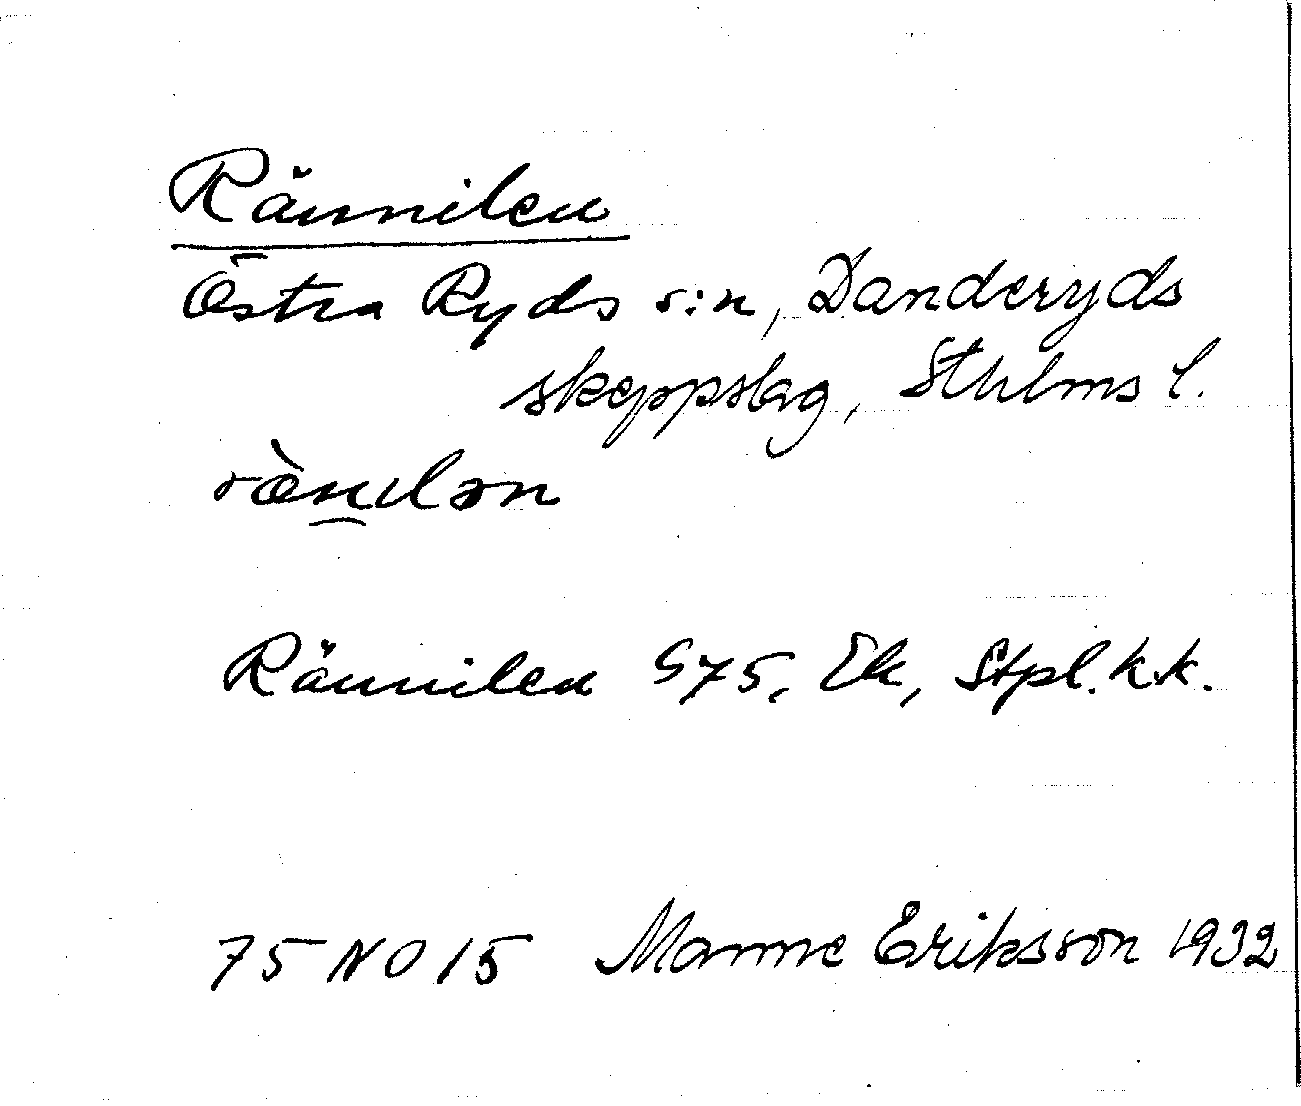 Rännilen
Östra Ryds s:n, Danderyds
skeppslag, Sthlms l.
rænɩlən
Rännilen S75, Ek, Stpl. k.k.
75 NO 15 Manne Eriksson 1932